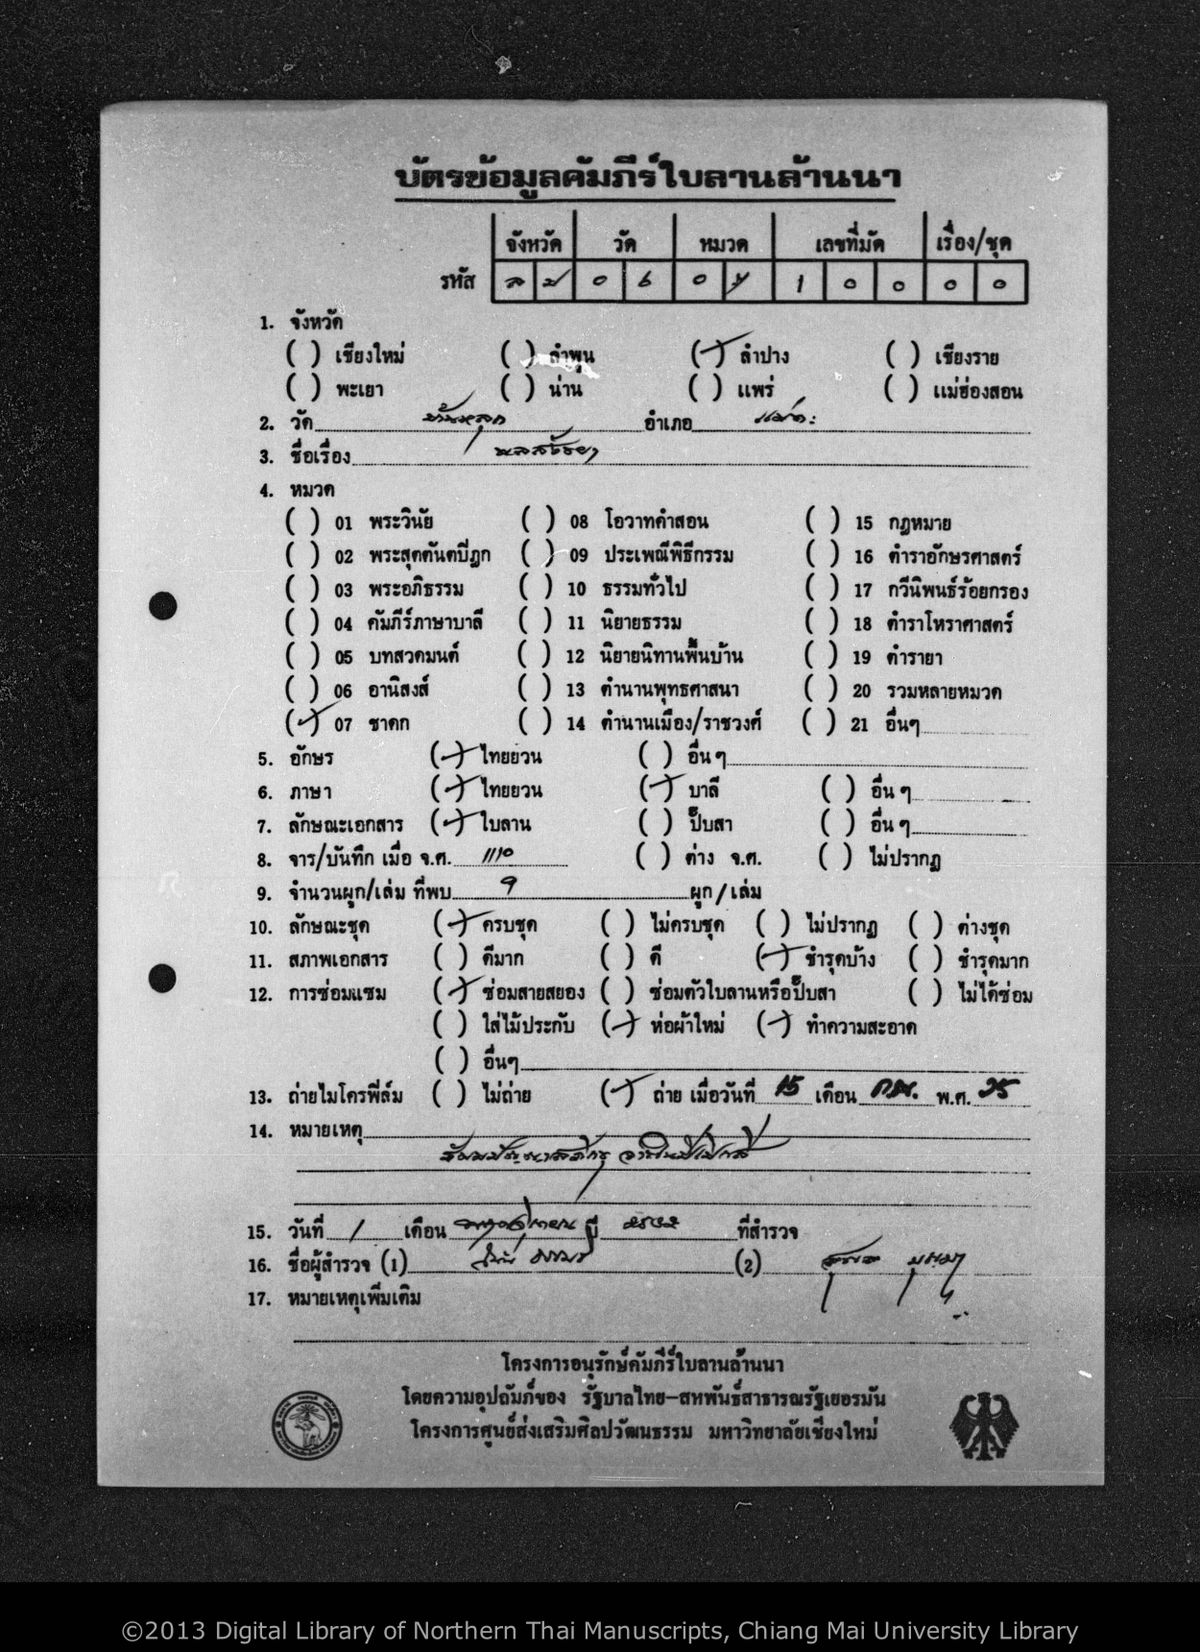 บัตรข้อมูลคัมภีร์ใบลานล้านนา
จังหวัด วัด หมวด เลขที่มัด เรื่อง/ชุด
รหัส ล ป 0 6 0 7 1 0 0 0 0
1. จังหวัด
( ) เชียงใหม่ ( ) ลำพูน (✓) ลำปาง ( ) เชียงราย
( ) พะเยา ( ) น่าน ( ) แพร่ ( ) แม่ฮ่องสอน
2. วัด บ้านหลุก อำเภอ แม่ทะ
3. ชื่อเรื่อง
4. หมวด
( ) 01 พระวินัย ( ) 08 โอวาทคำสอน ( ) 15 กฎหมาย
( ) 02 พระสุตตันตปิฎก ( ) 09 ประเพณีพิธีกรรม ( ) 16 ตำราอักษรศาสตร์
( ) 03 พระอภิธรรม ( ) 10 ธรรมทั่วไป ( ) 17 กวีนิพนธ์ร้อยกรอง
( ) 04 คัมภีร์ภาษาบาลี ( ) 11 นิยายธรรม ( ) 18 ตำราโหราศาสตร์
( ) 05 บทสวดมนต์ ( ) 12 นิยายนิทานพื้นบ้าน ( ) 19 ตำรายา
( ) 06 อานิสงส์ ( ) 13 ตำนานพุทธศาสนา ( ) 20 รวมหลายหมวด
(✓) 07 ชาดก ( ) 14 ตำนานเมือง/ราชวงศ์ ( ) 21 อื่นๆ
5. อักษร (✓) ไทยยวน ( ) อื่น ๆ
6. ภาษา (✓) ไทยยวน (✓) บาลี ( ) อื่น ๆ
7. ลักษณะเอกสาร (✓) ใบลาน ( ) ปั๊บสา ( ) อื่น ๆ
8. จาร/บันทึก เมื่อ จ.ศ. 1110 ( ) ต่าง จ.ศ. ( ) ไม่ปรากฏ
9. จำนวนผูก/เล่ม ที่พบ 9 ผูก/เล่ม
10. ลักษณะชุด (✓) ครบชุด ( ) ไม่ครบชุด ( ) ไม่ปรากฏ ( ) ต่างชุด
11. สภาพเอกสาร ( ) ดีมาก ( ) ดี (✓) ชำรุดบ้าง ( ) ชำรุดมาก
12. การซ่อมแซม (✓) ซ่อมสายสยอง ( ) ซ่อมตัวใบลานหรือปั๊บสา ( ) ไม่ได้ซ่อม
( ) ใส่ไม้ประกับ (✓) ห่อผ้าใหม่ (✓) ทำความสะอาด
( ) อื่นๆ
13. ถ่ายไมโครฟิล์ม ( ) ไม่ถ่าย (✓) ถ่าย เมื่อวันที่ 15 เดือน กพ. พ.ศ. 25
14. หมายเหตุ
15. วันที่ 1 เดือน พฤศจิกายน ปี ๒๕๓๒ ที่สำรวจ
16. ชื่อผู้สำรวจ (1) (2)
17. หมายเหตุเพิ่มเติม
โครงการอนุรักษ์คัมภีร์ใบลานล้านนา
โดยความอุปถัมภ์ของ รัฐบาลไทย-สหพันธ์สาธารณรัฐเยอรมัน
โครงการศูนย์ส่งเสริมศิลปวัฒนธรรม มหาวิทยาลัยเชียงใหม่
©2013 Digital Library of Northern Thai Manuscripts, Chiang Mai University Library